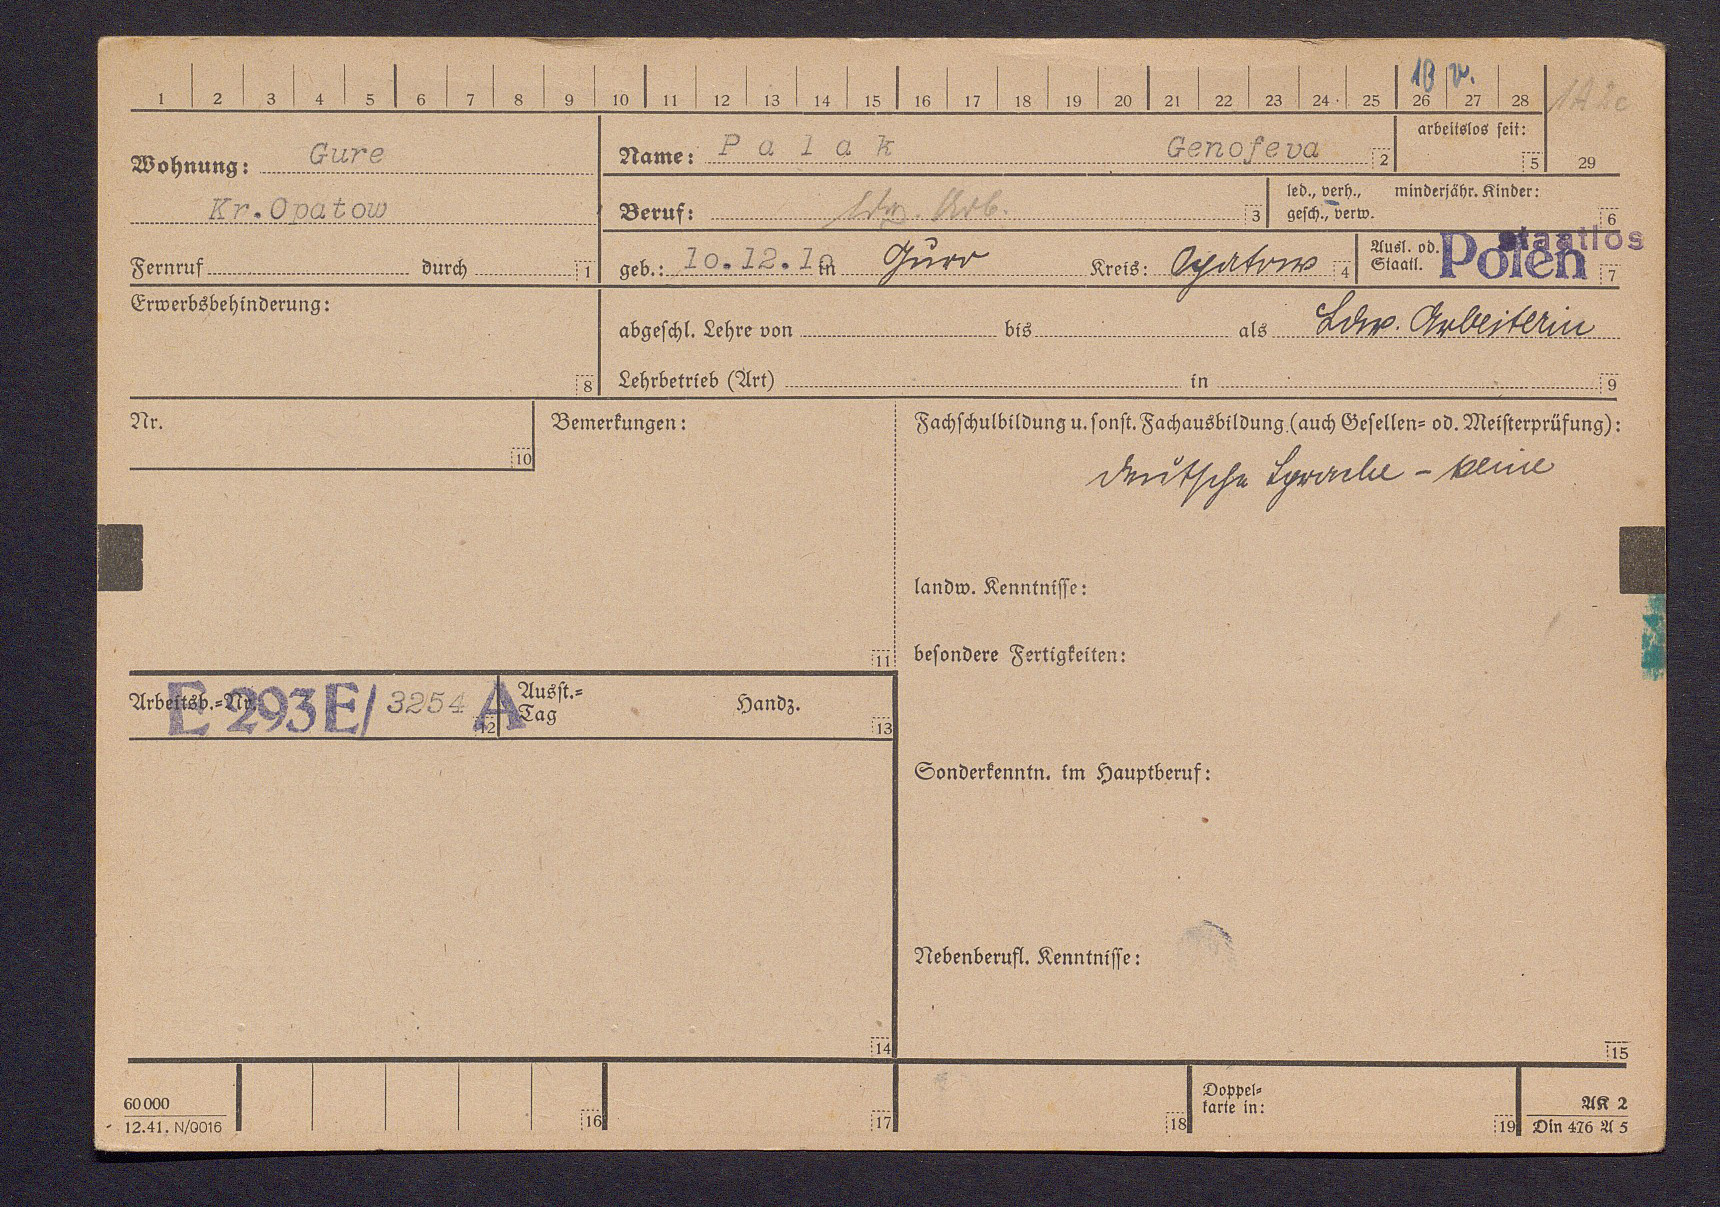 1 2 3 4 5 6 7 8 9 10 11 12 13 14 15 16 17 18 19 20 21 22 23 24 25 26 27 28
1B v.
1A 2c
Wohnung: Gure
Kr.Opatow
Fernruf durch 1
Name: P a l a k Genofeva 2
arbeitslos seit: 5
29
Beruf: Ldw. Arb. 3
led., verh., minderjähr. Kinder:
gesch., verw. 6
geb.: 10.12.10 in Guro Kreis: Opatow 4
Ausl. od. Staatl. Polen staatlos 7
Erwerbsbehinderung: 8
abgeschl. Lehre von bis als Ldw. Arbeiterin
Lehrbetrieb (Art) in 9
Nr. 10
Bemerkungen: 11
Fachschulbildung u. sonst. Fachausbildung (auch Gesellen= od. Meisterprüfung):
deutsche Sprache - keine
landw. Kenntnisse:
besondere Fertigkeiten:
Arbeitsb.=Nr. E 293E/ 3254 A 12
Ausst.=
Tag Handz. 13
Sonderkenntn. im Hauptberuf:
Nebenberufl. Kenntnisse:
14
15
60000
12.41. N/0016
16
17
18
Doppel=
karte in: 19
AK 2
Din 476 A 5